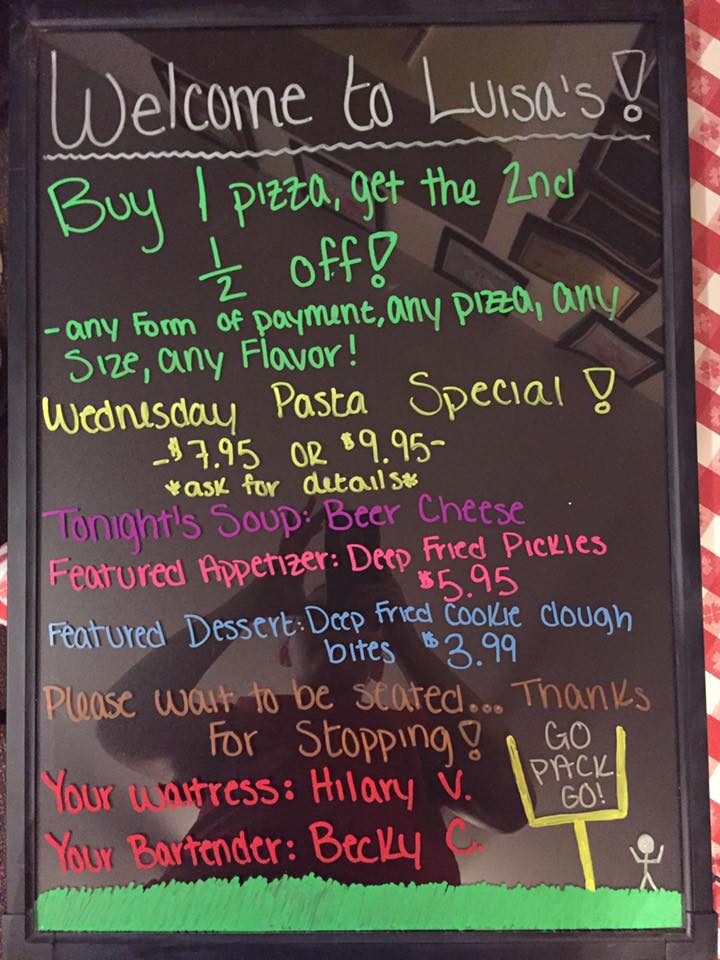 Welcome to Luisa's!
Buy 1 pizza, get the 2nd
1/2 off!
-any Form of payment, any pizza, any
Size, any Flavor!
Wednesday Pasta Special!
-$7.95 OR $9.95-
*ask for details*
Tonight's Soup: Beer Cheese
Featured Appetizer: Deep Fried Pickles
$5.95
Featured Dessert: Deep Fried Cookie dough
bites $3.99
Please wait to be seated... Thanks
For Stopping!
GO
PACK
GO!
Your waitress: Hilary V.
Your Bartender: Becky C.